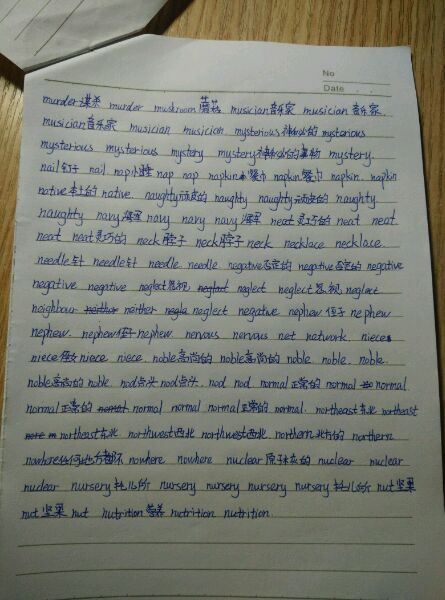 No
Date
murder谋杀 murder mushroom蘑菇 musician音乐家 musician音乐家.
musician音乐家 musician musician. mysterious神秘的 mysterious
mysterious mysterious mystery mystery神秘的事物 mystery.
nail钉子 nail nap小睡 nap nap napkin餐巾 napkin餐巾 napkin. napkin
native本土的 native. naughty顽皮的 naughty naughty顽皮的 naughty
naughty navy海军 navy navy navy海军 neat灵巧的 neat neat.
neat neat灵巧的 neck脖子 neck脖子 neck necklace necklace.
needle针 needle针 needle needle negative否定的 negative否定的 negative
negative negative neglect忽视 neglect neglect neglect忽视 neglect
neighbour neither neither neglect negative nephew侄子 nephew
nephew. nephew侄子 nephew. nervous nervous net network. niece
niece侄女 niece niece. noble高尚的 noble高尚的 noble noble. noble.
noble高尚的 noble. nod点头 nod点头. nod nod normal正常的 normal normal
normal正常的 normal normal normal正常的 normal. northeast东北 northeast
northeast东北 northwest西北 northwest西北 northern北方的 northern
nowhere任何地方都不 nowhere nowhere nuclear原子核的 nuclear nuclear
nuclear nursery托儿所 nursery nursery nursery nursery托儿所 nut坚果
nut坚果 nut nutrition营养 nutrition nutrition.